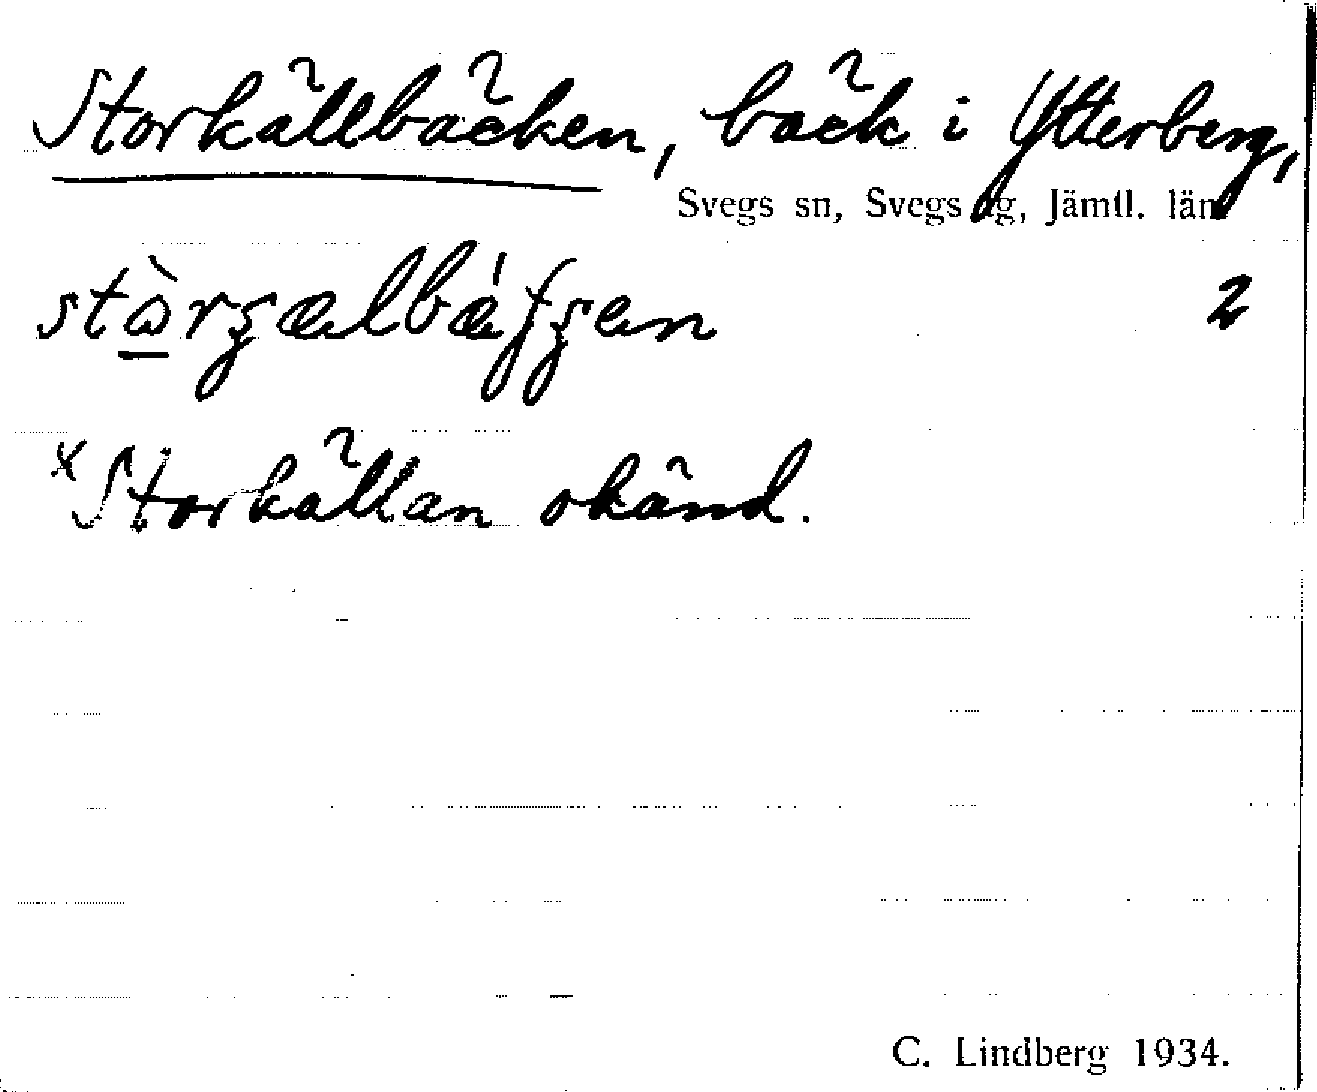 Storkällbäcken, bäck i Ytterberg,
Svegs sn, Svegs tg, Jämtl. län
2
×Storkällan okänd.
C. Lindberg 1934.